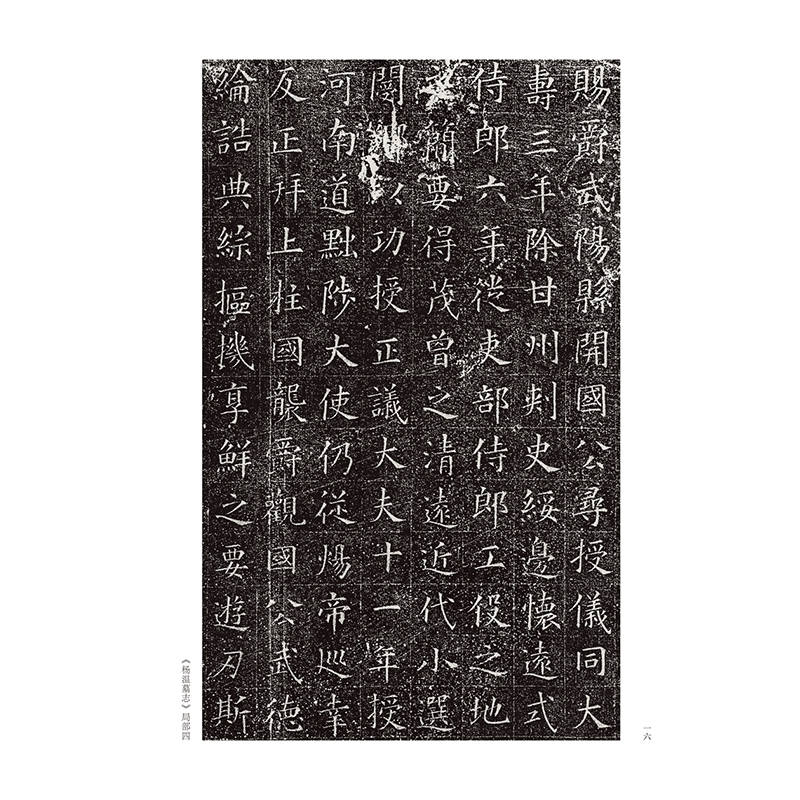 賜爵武陽縣開國公尋授儀同大
壽三年除甘州刾史綏邊懷遠式
侍郎六年從吏部侍郎工役之地
簡要得茂曾之清遠近代小選
鄉以功授正議大夫十一年授
河南道黜陟大使仍從煬帝巡幸
反正拜上柱國襲爵觀國公武德
綸誥典綜樞機享鮮之要遊刃斯
《杨温墓志》局部四
一六